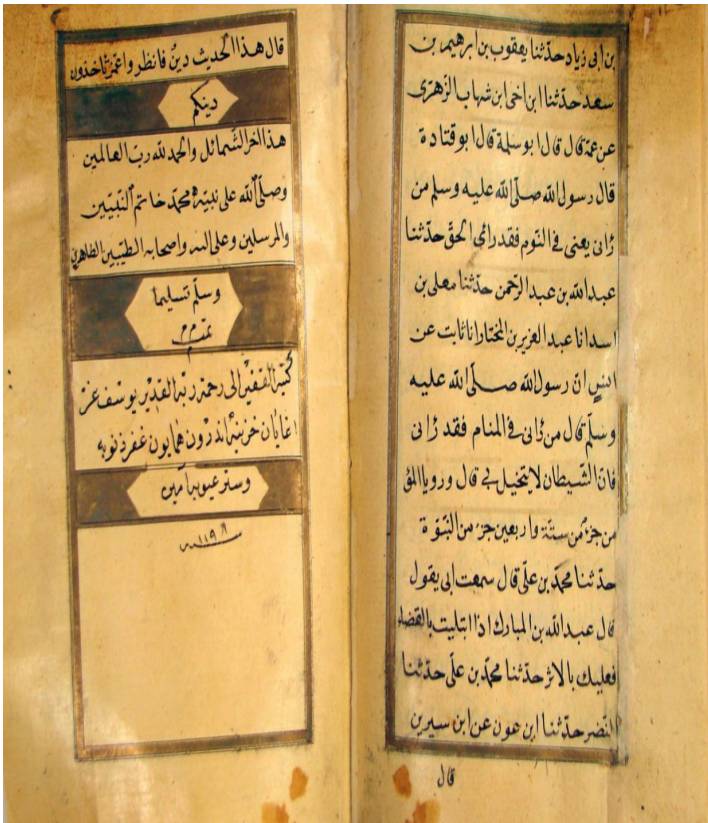 بن ابى زياد حدّثنا يعقوب بن ابرهيم بن
سعد حدّثنا ابن اخى ابن شهاب الزهرى
عن عمّه قال قال ابو سلمة قال ابو قتادة
قال رسول الله صلّى الله عليه وسلم من
رٰانى يعنى فى النّوم فقد راٰى الحقّ حدّثنا
عبد الله بن عبد الرّحمن حدّثنا معلى بن
اسد انا عبد العزيز بن المختار انا ثابت عن
انسٍ انّ رسول الله صلّى الله عليه
وسلّم قال من رٰانى فى المنام فقد رٰانى
فانّ الشّيطان لا يتخيل بى قال ورويا المؤ
من جزءٌ من ستّة واربعين جزءً من النّبوّة
حدّثنا محمّد بن علّى قال سمعت ابى يقول
قال عبد الله بن المبارك اذا ابتليت بالقضاء
فعليك بالاثر حدّثنا محمّد بن علّى حدّثنا
النّضر حدّثنا ابن عون عن ابن سيرين
قال
قال هذا الحديث دينٌ فانظروا عمّن تاخذون
دينكم
هذا اٰخر الشّمائل والحمد لله ربّ العالمين
وصلّى الله على نبيّه محمّد خاتم النّبيّين
والمرسلين وعلى اٰله واصحابه الطيّبين الطاهرين
وسلّم تسليما
تمّت م م
كتبه الفقير الى رحمة ربّه القدير يوسف عن
اغايان خزينهٔ اندرون همايون غفر ذنوبه
وستر عيوبه اٰمين
سنه ١١٩٨